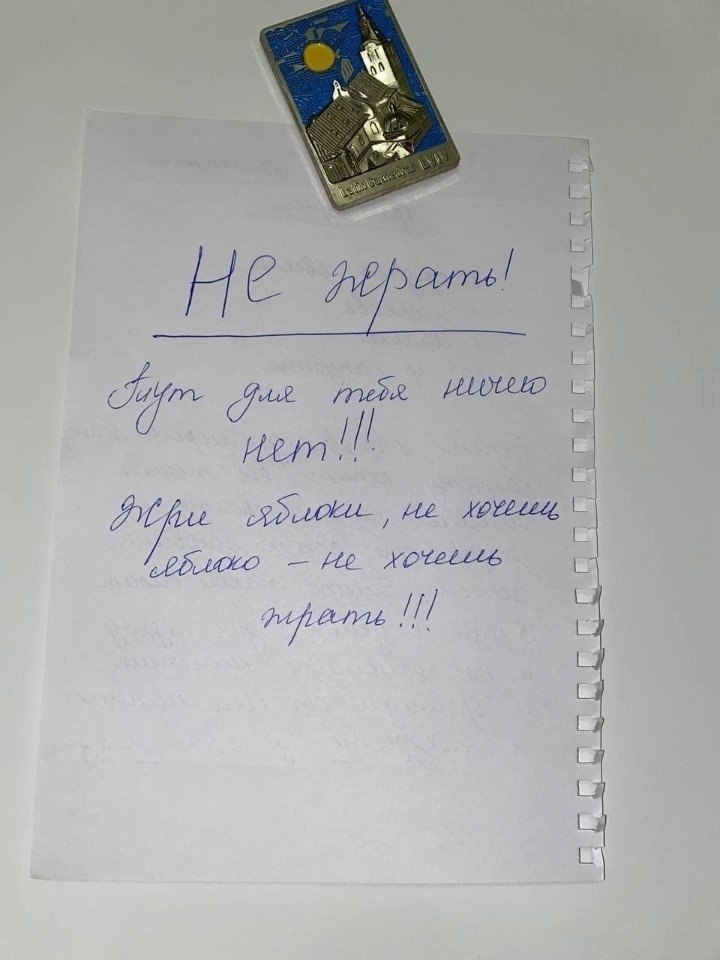 Latin Cathedral LVIV
Не жрать!
Тут для тебя ничего
нет!!!
Жри яблоки, не хочешь
яблоко – не хочешь
жрать!!!